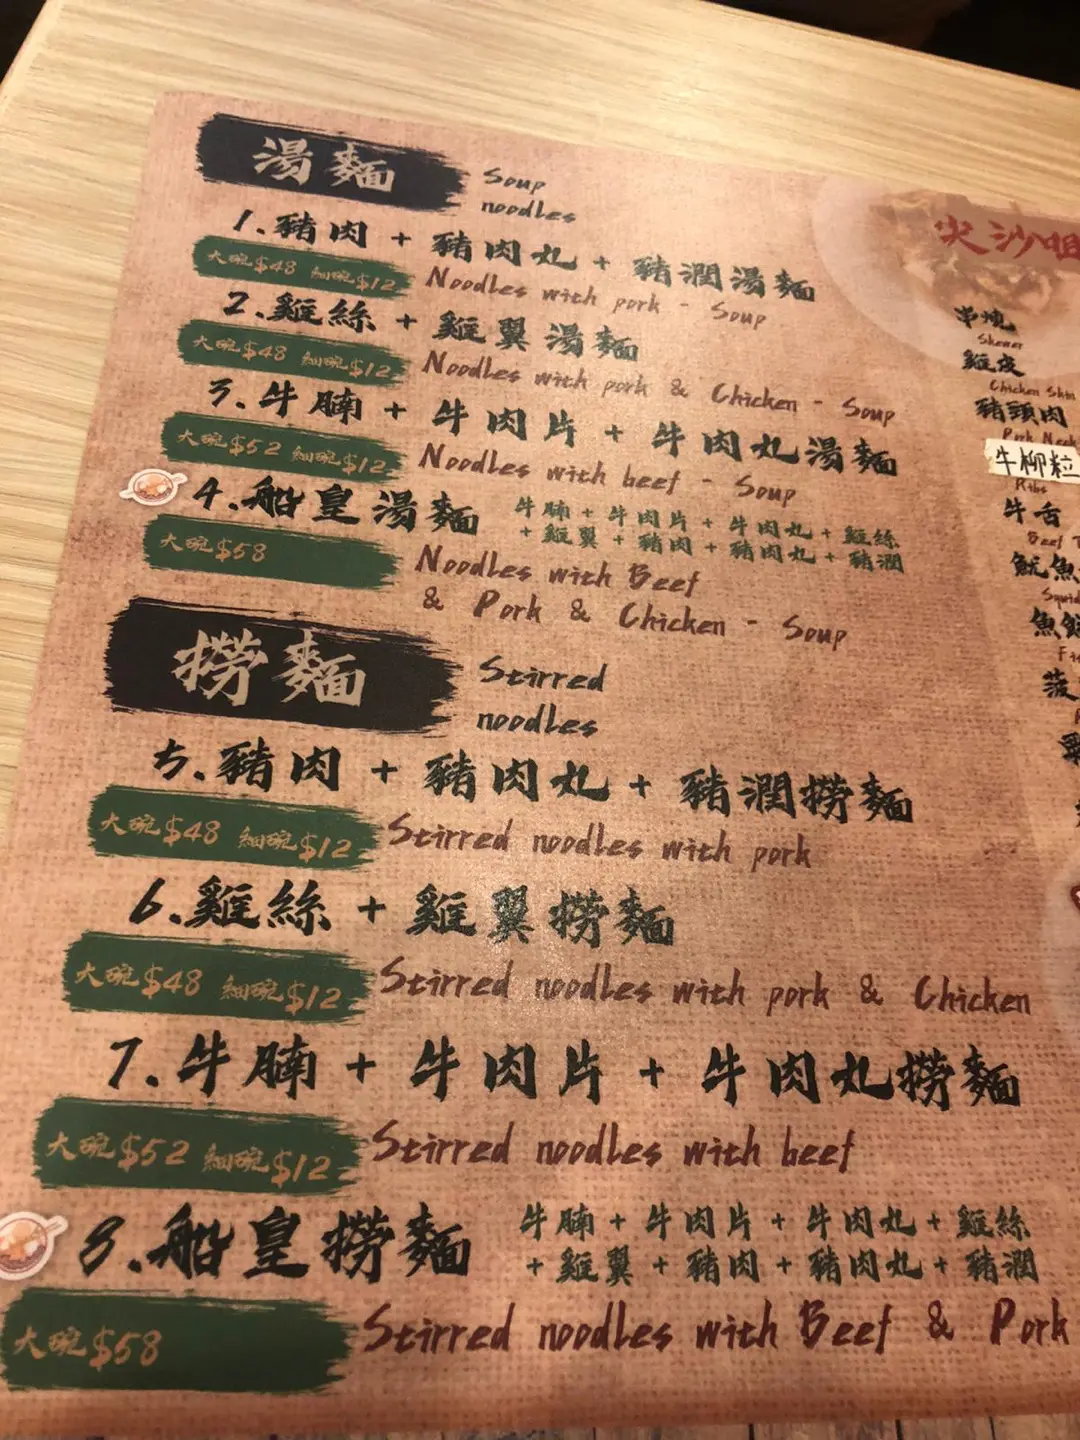 湯麵
Soup
noodles
1.豬肉 + 豬肉丸 + 豬潤湯麵
大碗$48 細碗$12
Noodles with pork - Soup
2.雞絲 + 雞翼湯麵
大碗$48 細碗$12
Noodles with pork & Chicken - Soup
3.牛腩 + 牛肉片 + 牛肉丸湯麵
大碗$52 細碗$12
Noodles with beef - Soup
4.船皇湯麵
牛腩 + 牛肉片 + 牛肉丸 + 雞絲
+ 雞翼 + 豬肉 + 豬肉丸 + 豬潤
大碗$58
Noodles with Beef
& Pork & Chicken - Soup
撈麵
Stirred
noodles
5.豬肉 + 豬肉丸 + 豬潤撈麵
大碗$48 細碗$12
Stirred noodles with pork
6.雞絲 + 雞翼撈麵
大碗$48 細碗$12
Stirred noodles with pork & Chicken
7.牛腩 + 牛肉片 + 牛肉丸撈麵
大碗$52 細碗$12
Stirred noodles with beef
8.船皇撈麵
牛腩 + 牛肉片 + 牛肉丸 + 雞絲
+ 雞翼 + 豬肉 + 豬肉丸 + 豬潤
大碗$58
Stirred noodles with Beef & Pork
尖沙咀
串燒
Skewer
雞皮
Chicken Skin
豬頸肉
Pork Neck
牛柳粒
Ribs
牛舌
Beef
魷魚
Squid
魚
菠